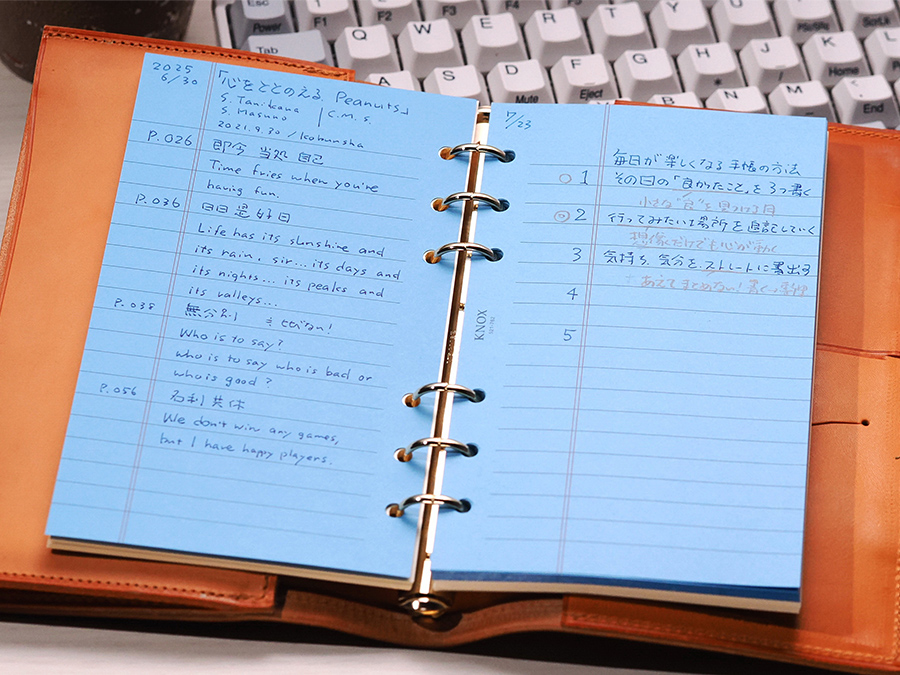 2025
6/30
「心をととのえる Peanuts」
S. Tanikawa
S. Masuno
C.M.S.
2021.9.30 / Kobunsha
P.026
即今 当処 自己
Time fries when you're
having fun.
P.036
日日是好日
Life has its sunshine and
its rain, sir... its days and
its nights... its peaks and
its valleys...
P.038
無分別
Who is to say?
who is to say who is bad or
who is good?
P.056
We don't win any games,
but I have happy players.
KNOX
7/23
毎日が楽しくなる手帳の方法
1 その日の「良かったこと」を3つ書く
小さな"良"を見つける
2 行ってみたい場所を追記していく
想像だけでも心が動く
3 気持ち、気分を、ストレートに書出す
あえてまとめない!書く
4
5
Esc
Power
F1
F2
F3
Tab
Q
W
E
R
T
Y
U
A
S
D
F
G
H
J
K
L
Mute
Eject
Home
End
B
N
M